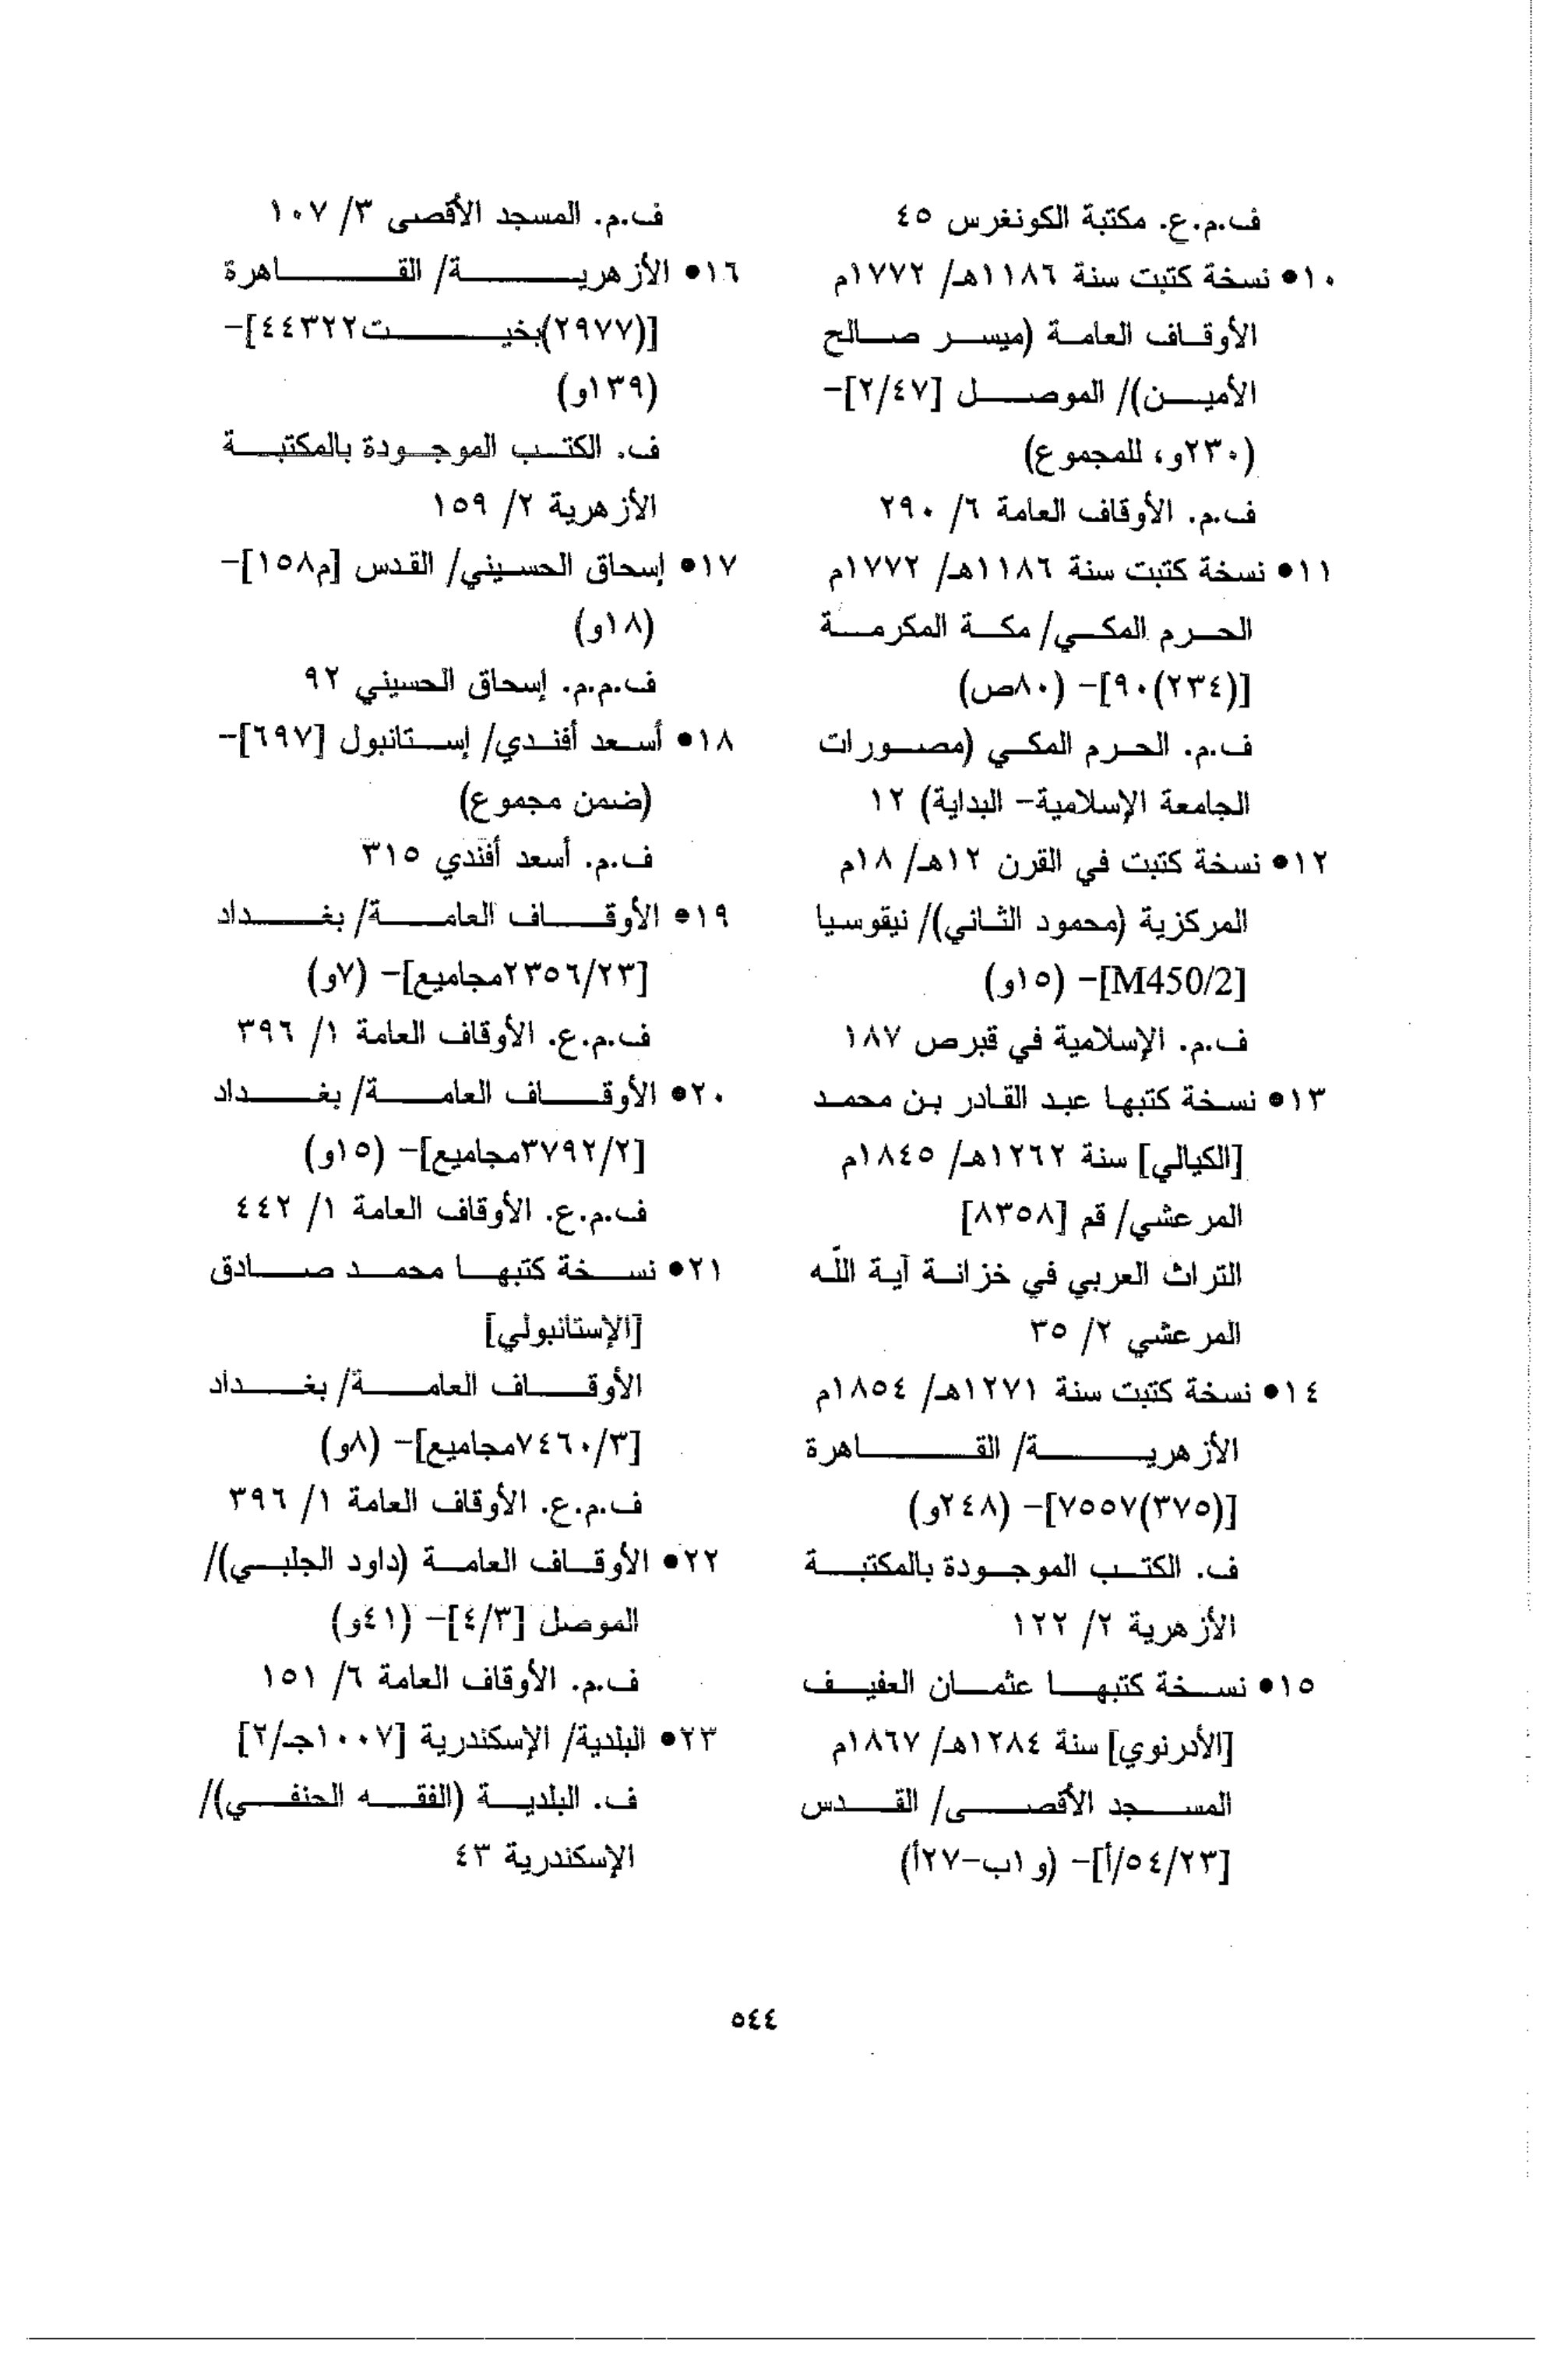 ف.م.ع. مكتبة الكونغرس ٤٥
١٠● نسخة كتبت سنة ١١٨٦هـ/ ١٧٧٢م
الأوقاف العامة (ميسر صالح
الأمين)/ الموصل [٢/٤٧]-
(٢٣٠و، للمجموع)
ف.م. الأوقاف العامة ٦/ ٢٩٠
١١● نسخة كتبت سنة ١١٨٦هـ/ ١٧٧٢م
الحرم المكي/ مكة المكرمة
[(٢٣٤)٩٠]- (٨٠ص)
ف.م. الحرم المكي (مصورات
الجامعة الإسلامية- البداية) ١٢
١٢● نسخة كتبت في القرن ١٢هـ/ ١٨م
المركزية (محمود الثاني)/ نيقوسيا
[M450/2]- (١٥و)
ف.م. الإسلامية في قبرص ١٨٧
١٣● نسخة كتبها عبد القادر بن محمد
[الكيالي] سنة ١٢٦٢هـ/ ١٨٤٥م
المرعشي/ قم [٨٣٥٨]
التراث العربي في خزانة آية اللّه
المرعشي ٢/ ٣٥
١٤● نسخة كتبت سنة ١٢٧١هـ/ ١٨٥٤م
الأزهرية/ القاهرة
[(٣٧٥)٧٥٥٧]- (٢٤٨و)
ف. الكتب الموجودة بالمكتبة
الأزهرية ٢/ ١٢٢
١٥● نسخة كتبها عثمان العفيف
[الأدرنوي] سنة ١٢٨٤هـ/ ١٨٦٧م
المسجد الأقصى/ القدس
[٥٤/٢٣/أ]- (و١ب-٢٧أ)
ف.م. المسجد الأقصى ٣/ ١٠٧
١٦● الأزهرية/ القاهرة
[(٢٩٧٧)بخيت٤٤٣٢٢]-
(١٣٩و)
ف. الكتب الموجودة بالمكتبة
الأزهرية ٢/ ١٥٩
١٧● إسحاق الحسيني/ القدس [م١٥٨]-
(١٨و)
ف.م.م. إسحاق الحسيني ٩٢
١٨● أسعد أفندي/ إستانبول [٦٩٧]-
(ضمن مجموع)
ف.م. أسعد أفندي ٣١٥
١٩● الأوقاف العامة/ بغداد
[٢٣٥٦/٢٣مجاميع]- (٧و)
ف.م.ع. الأوقاف العامة ١/ ٣٩٦
٢٠● الأوقاف العامة/ بغداد
[٣٧٩٢/٢مجاميع]- (١٥و)
ف.م.ع. الأوقاف العامة ١/ ٤٤٢
٢١● نسخة كتبها محمد صادق
[الإستانبولي]
الأوقاف العامة/ بغداد
[٧٤٦٠/٣مجاميع]- (٨و)
ف.م.ع. الأوقاف العامة ١/ ٣٩٦
٢٢● الأوقاف العامة (داود الجلبي)/
الموصل [٤/٣]- (٤١و)
ف.م. الأوقاف العامة ٦/ ١٥١
٢٣● البلدية/ الإسكندرية [١٠٠٧جـ/٢]
ف. البلدية (الفقه الحنفي)/
الإسكندرية ٤٣
٥٤٤